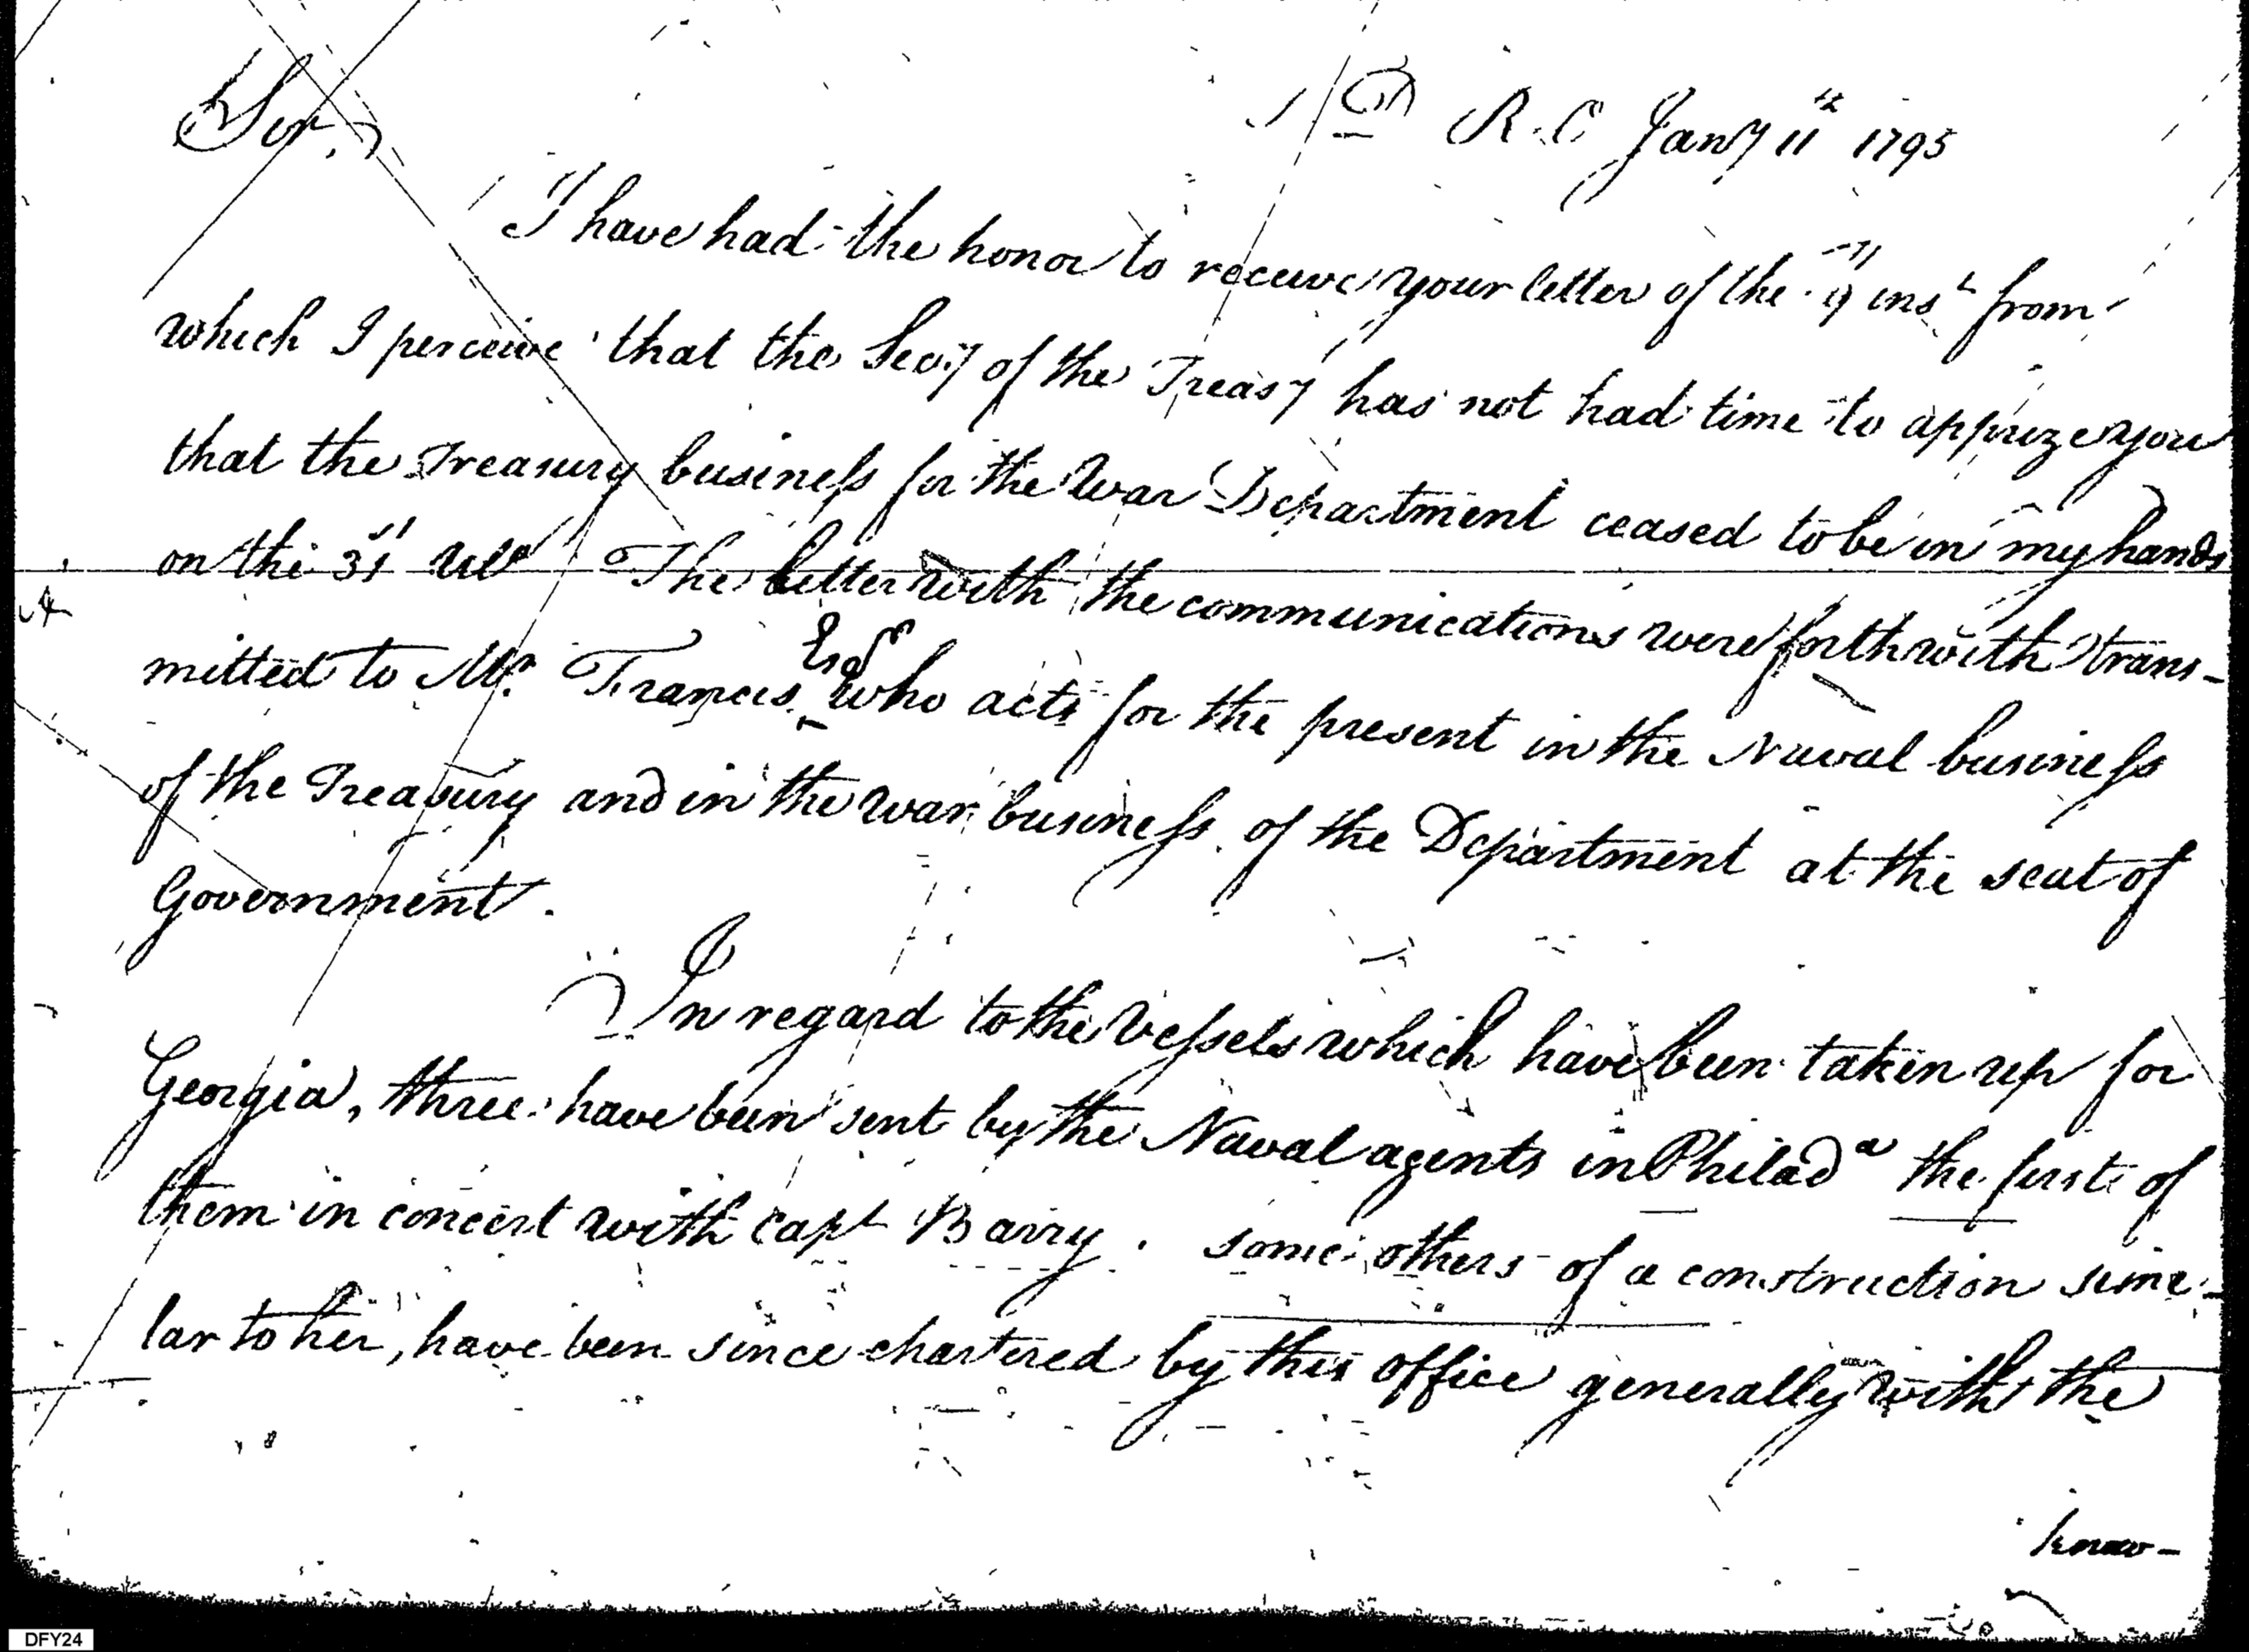 Sir,
T.D R.O Jany 11th 1795
I have had the honor to receive your letter of the 9 inst from
which I perceive that the Secy of the Treasy has not had time to apprize you
that the Treasury business for the War Department ceased to be in my hands
on the 31st Ulto The letter with the communications were forthwith trans-
mitted to Mr. Francis Esqr who acts for the present in the Naval business
of the Treasury and in the war business of the Department at the seat of
Government.
In regard to the Vessels which have been taken up for
Georgia, three have been sent by the Naval agents in Philada the first of
them in concert with Capt Barry. some others of a construction simi-
lar to her, have been since chartered by this office generally with the
know-
DFY24